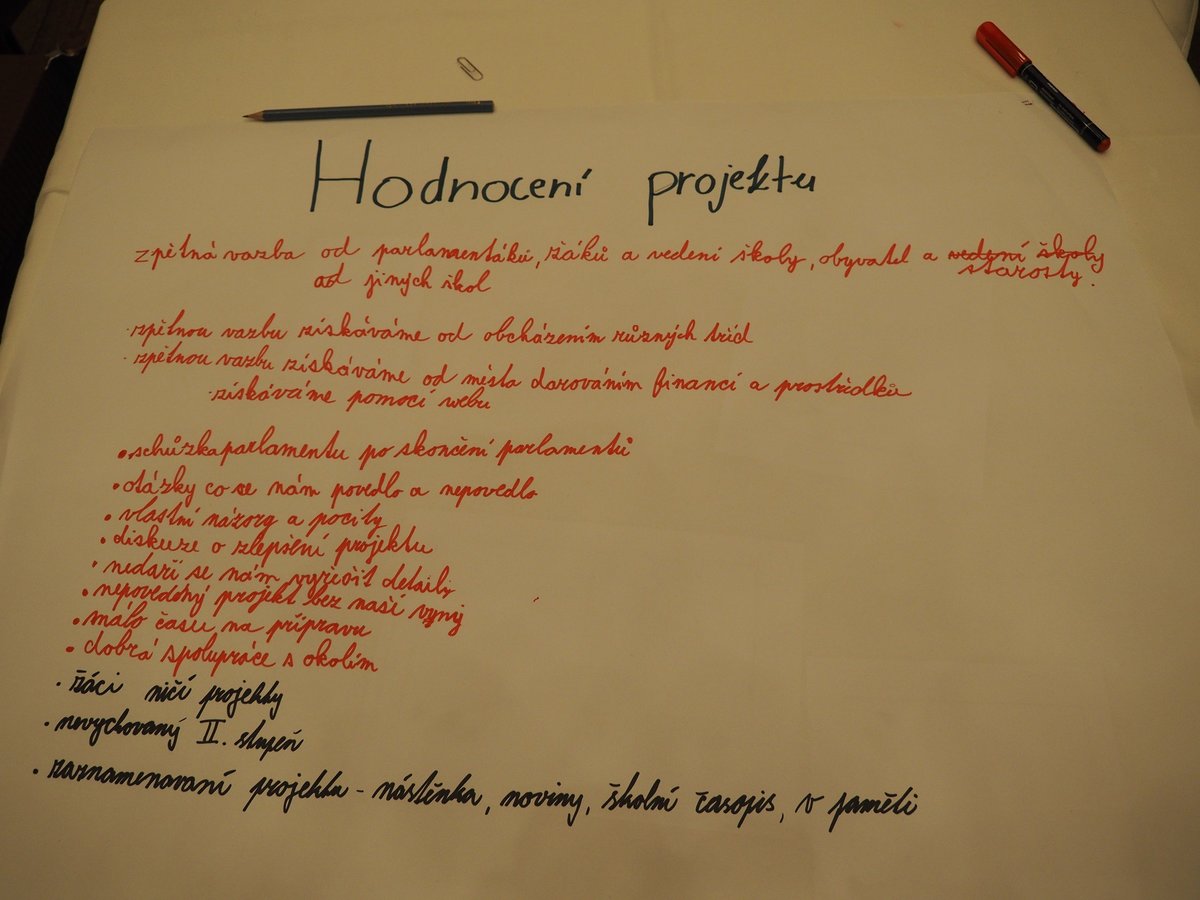 Hodnocení projektu
zpětná vazba od parlamentáků, žáků a vedení školy, obyvatel a vedení školy
od jiných škol starosty.
· zpětnou vazbu získáváme od obcházením různých tříd
· zpětnou vazbu získáváme od města darováním financí a prostředků
· získáváme pomocí webu
• schůzka parlamentu po skončení parlamentů
• otázky co se nám povedlo a nepovedlo
• vlastní názory a pocity
• diskuze o zlepšení projektu
• nedaří se nám vyřešit detaily
• nepovedený projekt bez naší
• málo času na přípravu
• dobrá spolupráce s okolím
• žáci ničí projekty
• nevychovaný II. stupeň
• zaznamenavaní projektu - nástěnka, noviny, školní časopis, v paměti